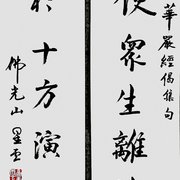 華嚴經偈集句
使眾生離
於十方演
佛光山 星雲